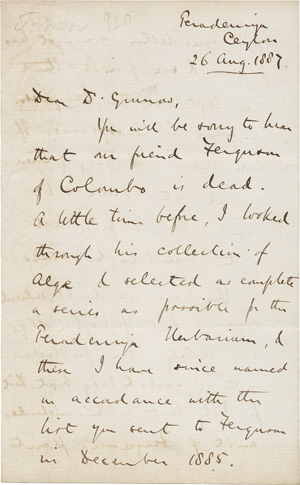 Peradeniya
Ceylon
26 Aug. 1887.
Dear Dr Grunow,
You will be sorry to hear
that our friend Ferguson
of Colombo is dead.
A little time before, I looked
through his collection of
Algæ & selected as complete
a series as possible for the
Peradeniya Herbarium, &
these I have since named
in accordance with the
list you sent to Ferguson
in December 1885.